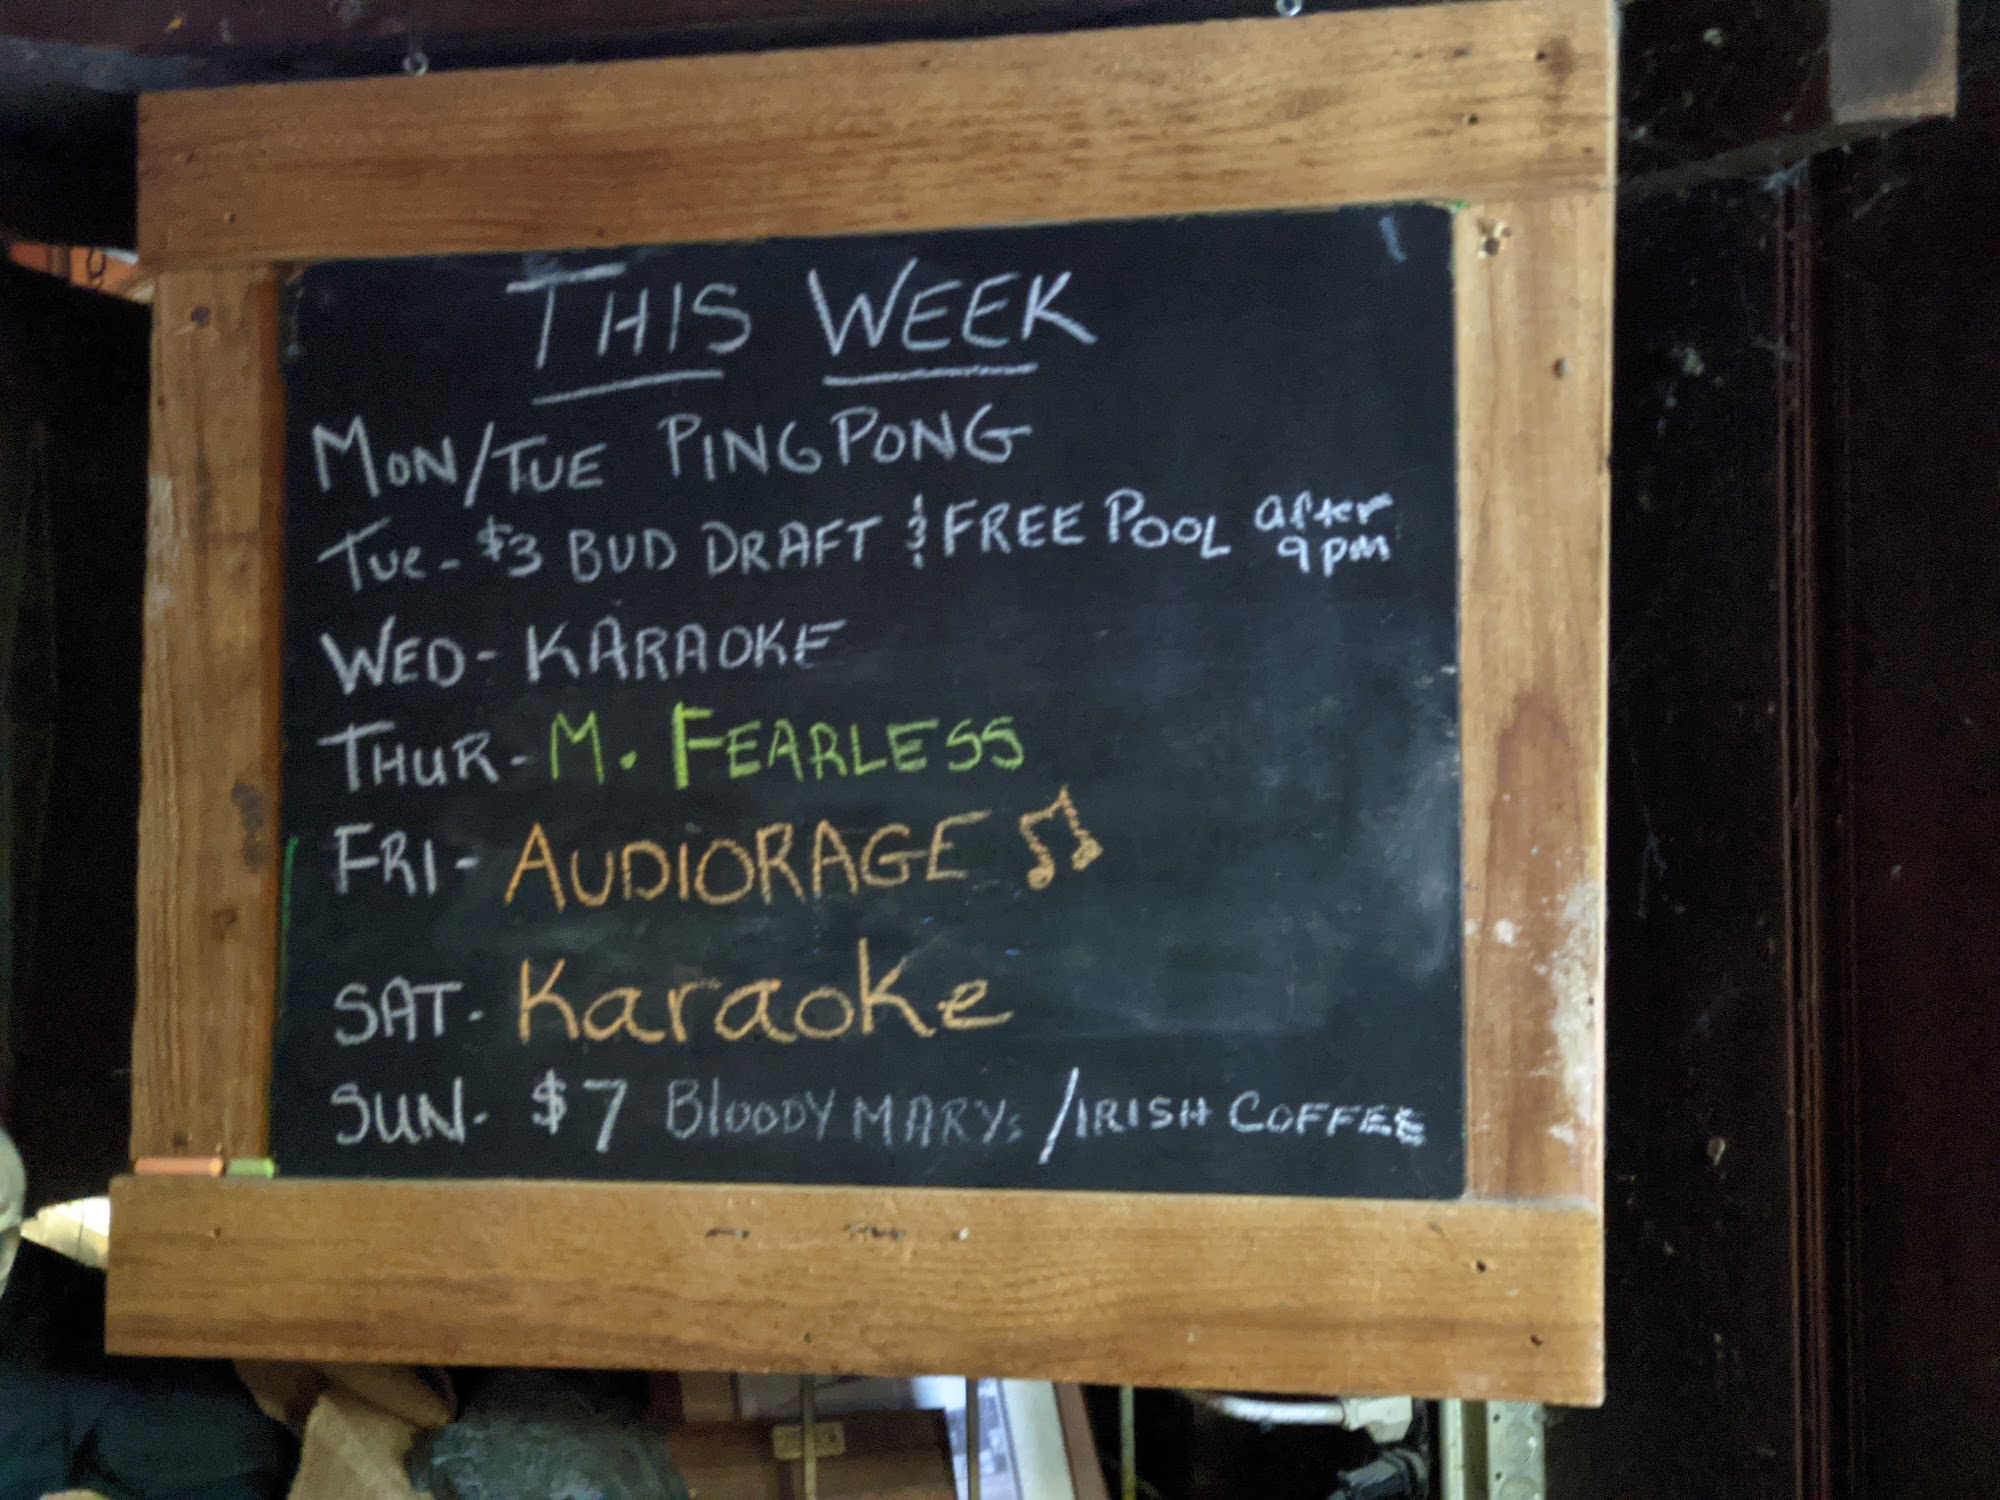 THIS WEEK
MON/TUE PING PONG
Tue - $3 BUD DRAFT & FREE POOL after 9pm
WED - KARAOKE
THUR - M. FEARLESS
FRI - AUDIORAGE
SAT - Karaoke
SUN - $7 BLOODY MARYs / IRISH COFFEE